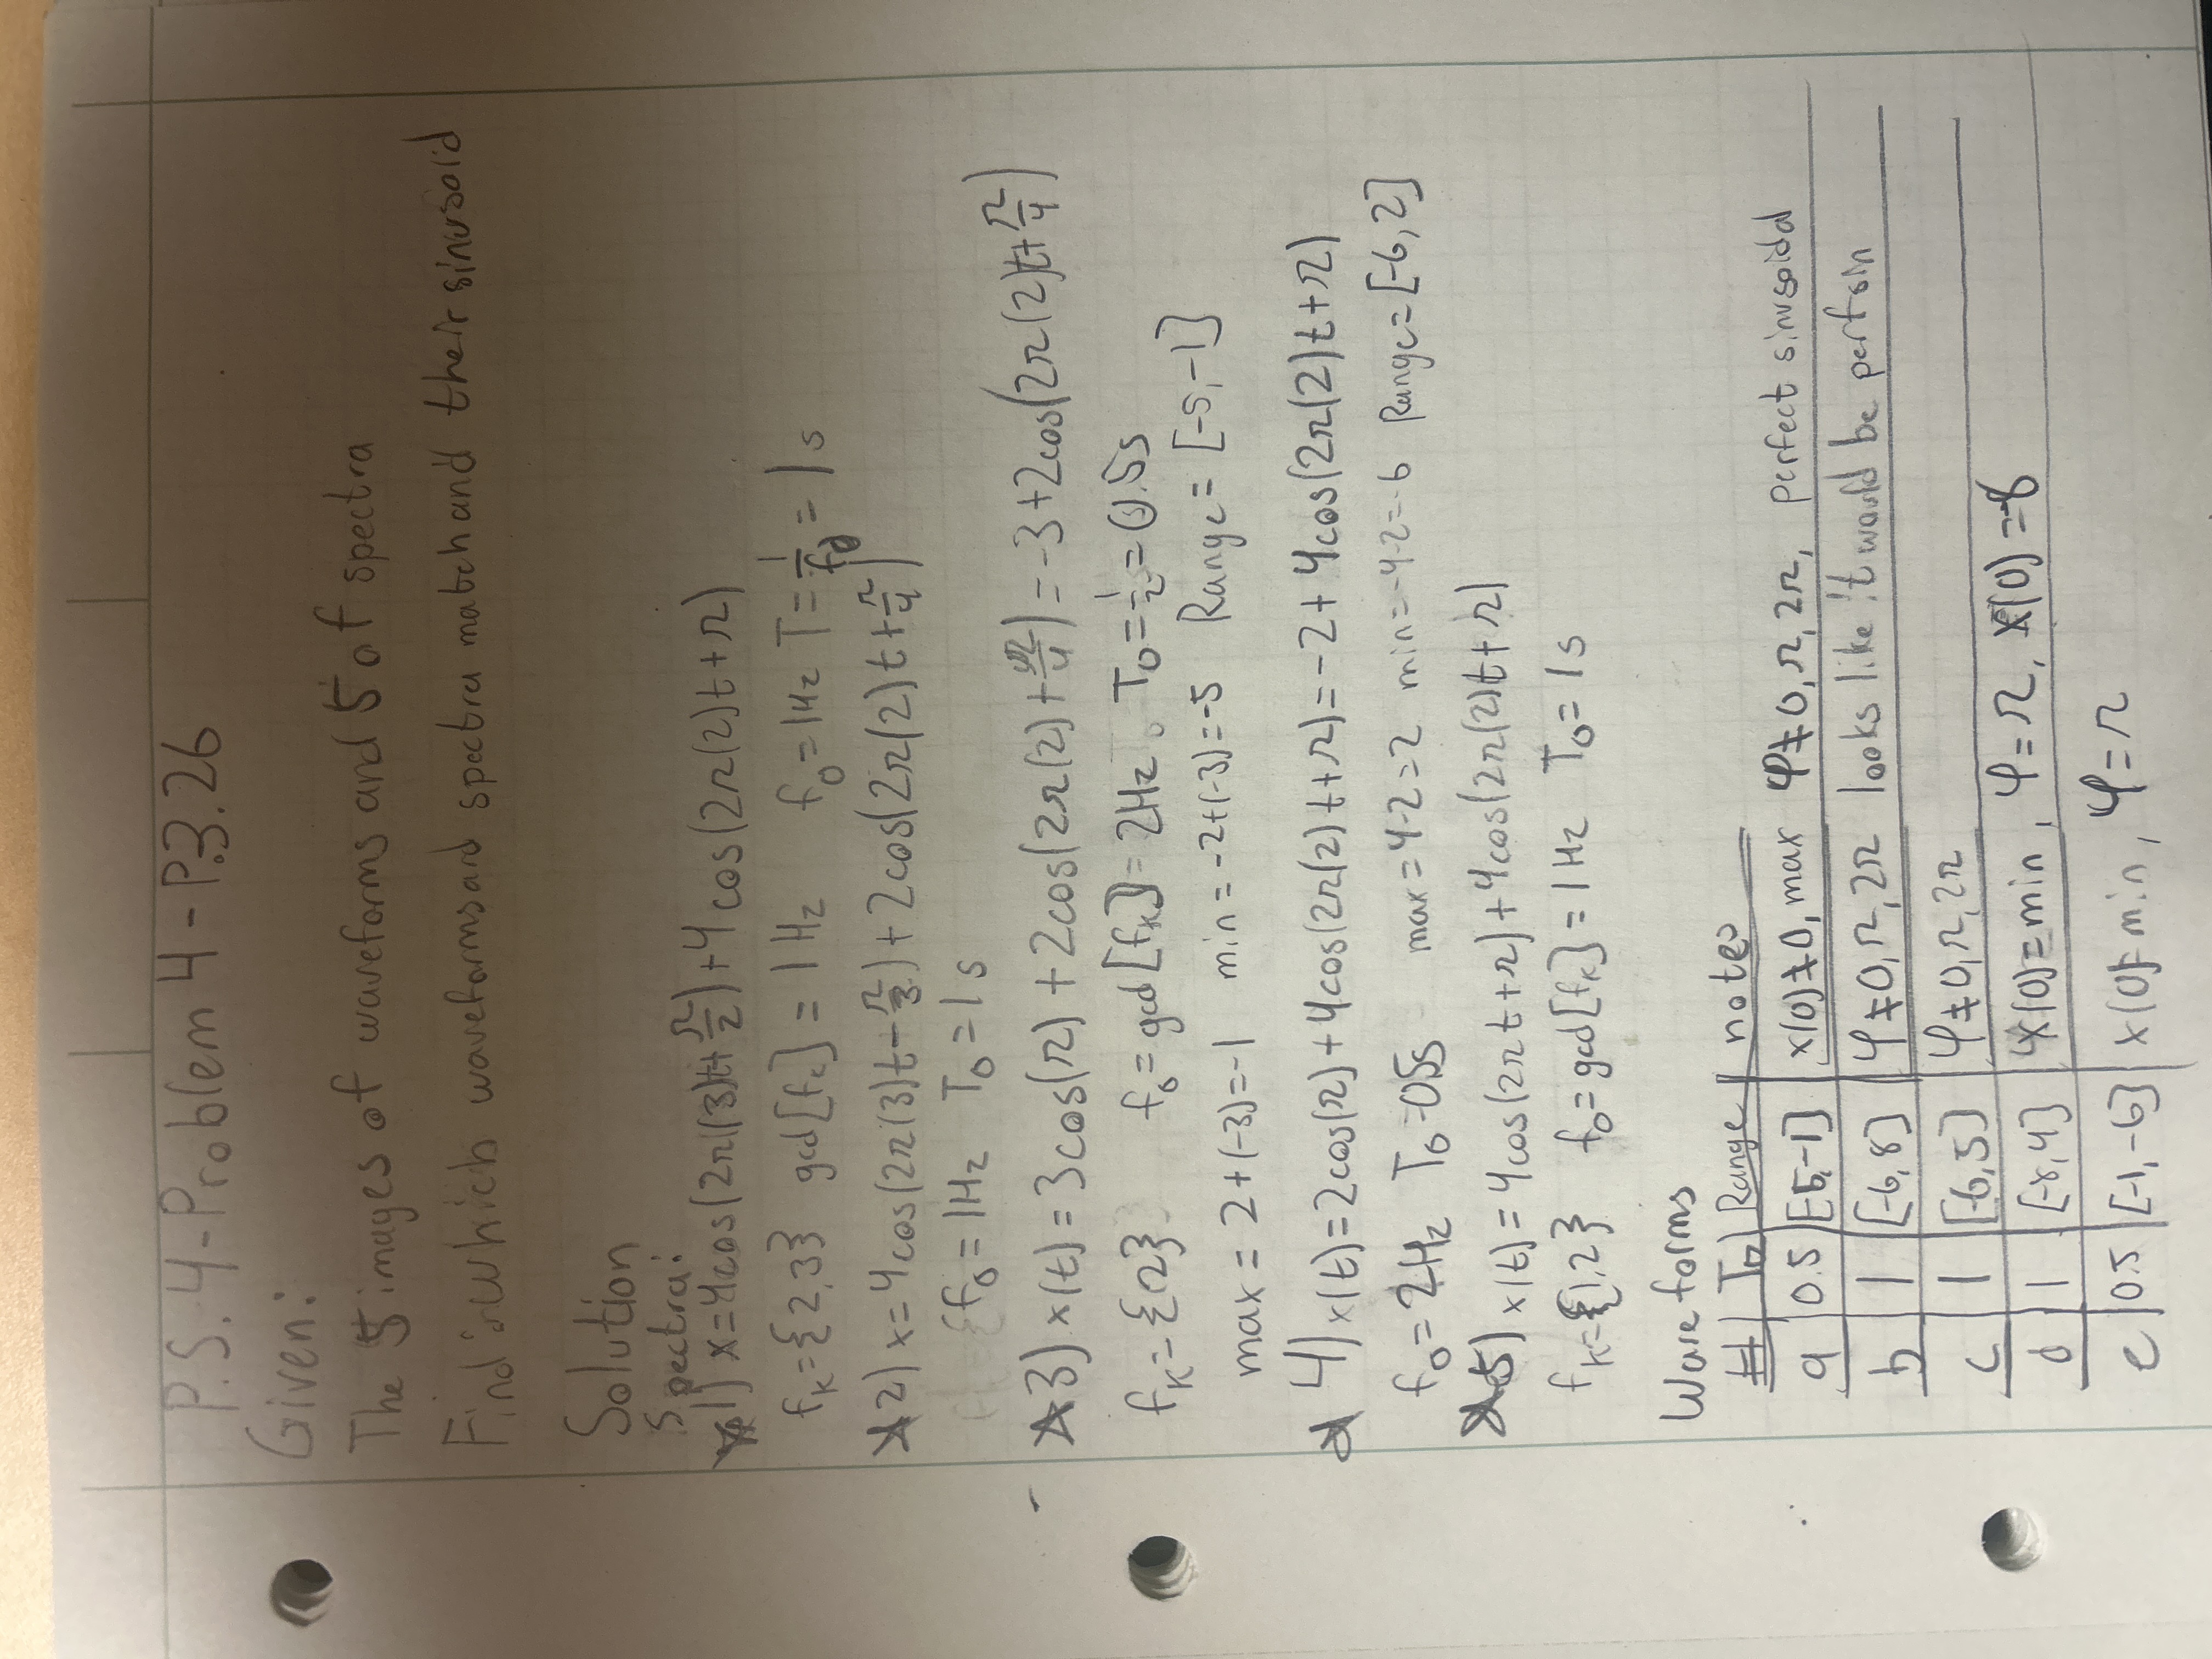 P.S. 4-Problem 4-P.3.26
Given:
The 5 images of waveforms and 5 of spectra
Find: which waveforms and spectra match and their sinusoid
Solution
Spectra:
1) x=4cos(2π(3)t+π/2)+4cos(2π(2)t+π)
f_k={2,3} gcd[f_k]=1Hz f_0=1Hz T=1/f_0=1s
2) x=4cos(2π(3)t-π/3)+2cos(2π(2)t+π/4)
f_0=1Hz T_0=1s
3) x(t)=3cos(π)+2cos(2π(2)+π/4)=-3+2cos(2π(2)t+π/4)
f_k={2} f_0=gcd[f_k]=2Hz T_0=1/2=0.5s
max=2+(-3)=-1 min=-2+(-3)=-5 Range=[-5,-1]
4) x(t)=2cos(π)+4cos(2π(2)t+π)=-2+4cos(2π(2)t+π)
f_0=2Hz T_0=0.5s max=4-2=2 min=-4-2=-6 Range=[-6,2]
5) x(t)=4cos(2πt+π)+4cos(2π(2)t+π)
f_k={1,2} f_0=gcd[f_k]=1Hz T_0=1s
Waveforms
# T_0 Range notes
a 0.5 [-5,-1] x(0)≠0, max φ≠0,π,2π, perfect sinusoidal
b 1 [-6,8] φ≠0,π,2π looks like it would be perf sin
c 1 [-6,5] φ≠0,π,2π
d 1 [-8,4] x(0)=min, φ=π, x(0)=-8
e 0.5 [-1,-6] x(0)=min, φ=π